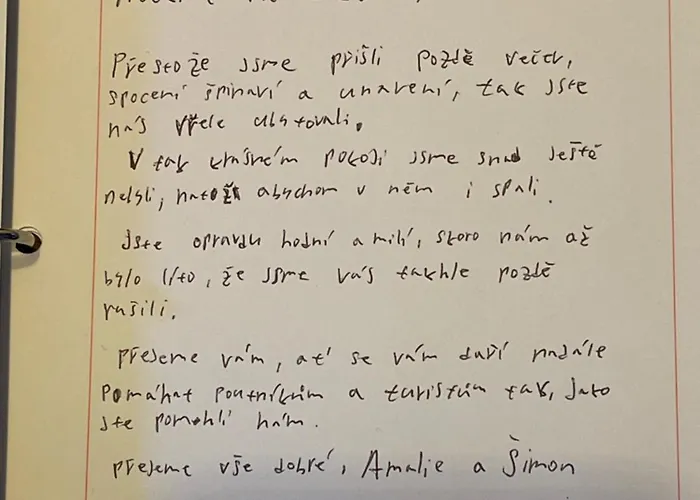 Přestože jsme přišli pozdě večer,
spocení špinaví a unavení, tak jste
nás vřele ubytovali.
V tak krásném pokoji jsme snad ještě
nebyli, natož abychom v něm i spali.
Jste opravdu hodní a milí, skoro nám až
bylo líto, že jsme vás takhle pozdě
rušili.
Přejeme vám, ať se vám daří nadále
pomáhat poutníkům a turistům tak, jako
jste pomohli nám.
Přejeme vše dobré, Amalie a Šimon